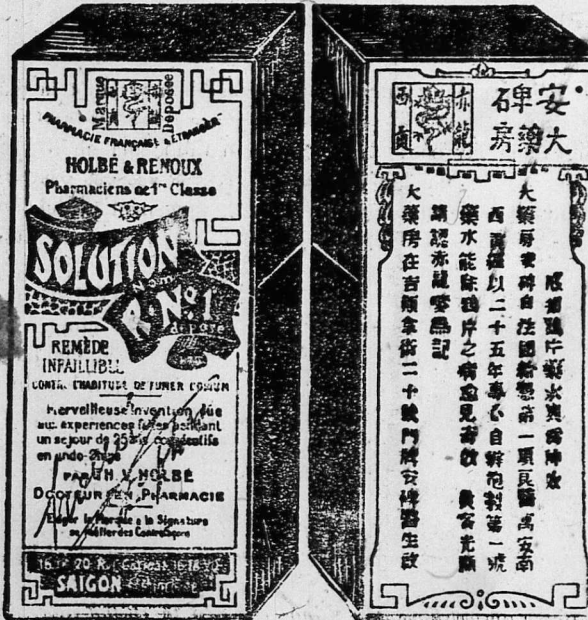 Marque Déposée
PHARMACIE FRANÇAISE & ÉTRANGÈRE
HOLBÉ & RENOUX
Pharmaciens de 1re Classe
SOLUTION
Nom
R. No 1
déposé
REMÈDE
INFAILLIBLE
CONTRE L'HABITUDE DE FUMER L'OPIUM
Merveilleuse Invention due
aux expériences faites pendant
un séjour de 25 ans consécutifs
en Indo-Chine
PAR TH. V. HOLBÉ
DOCTEUR EN PHARMACIE
Exiger la Marque & la Signature
se méfier des Contrefaçons
16 18 20 R. Catinat 16 18 20
SAIGON
安碑
大藥房
赤龍
西貢
鴉片藥水神效
大藥房安碑自法國第一項良醫寓安南
西貢以二十五年專心自製第一號
藥水能除鴉片之病愈見奇效 貴客光顧
請認赤龍爲記
大藥房在吉街二十號門牌安碑醫生啟